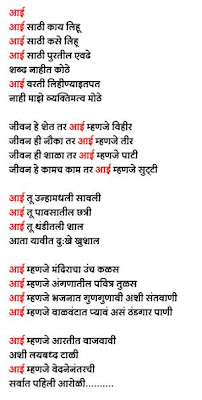 आई
आई साठी काय लिहू
आई साठी कसे लिहू
आई साठी पुरतील एवढे
शब्द नाहीत कोठे
आई वरती लिहीण्याइतपत
नाही माझे व्यक्तिमत्व मोठे
जीवन हे शेत तर आई म्हणजे विहीर
जीवन ही नौका तर आई म्हणजे तीर
जीवन ही शाळा तर आई म्हणजे पाटी
जीवन हे कामच काम तर आई म्हणजे सुट्टी
आई तू उन्हामधली सावली
आई तू पावसातील छत्री
आई तू थंडीतली शाल
आता यावीत दुःखे खुशाल
आई म्हणजे मंदिराचा उंच कळस
आई म्हणजे अंगणातील पवित्र तुळस
आई म्हणजे भजनात गुणगुणावी अशी संतवाणी
आई म्हणजे वाळवंटात प्यावं असं थंडगार पाणी
आई म्हणजे आरतीत वाजवावी
अशी लयबध्द टाळी
आई म्हणजे वेदनेनंतरची
सर्वात पहिली आरोळी..........